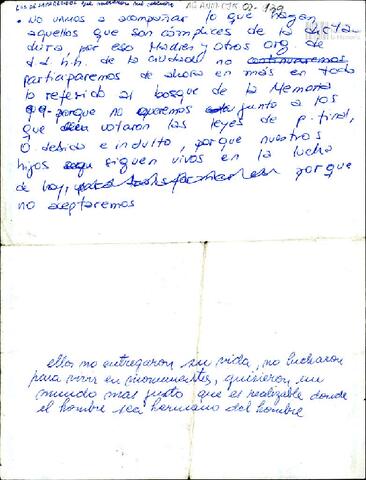 02-139
• No vamos a acompañar lo que hagan
aquellos que son cómplices de la dicta
dura, por eso Madres y otros org. de
d.d.h.h. de la ciudad no continuaremos
participaremos de ahora en más en todo
lo referido al bosque de la Memoria
porque no queremos junto a los
que votaron las leyes de p. final,
O. debida e indulto, porque nuestros
hijos siguen vivos en la lucha
de hoy, porque
no aceptaremos
ellos no entregaron su vida, no lucharon
para vivir en monumentos, quisieron un
mundo mas justo que es realizable donde
el hombre sea hermano del hombre